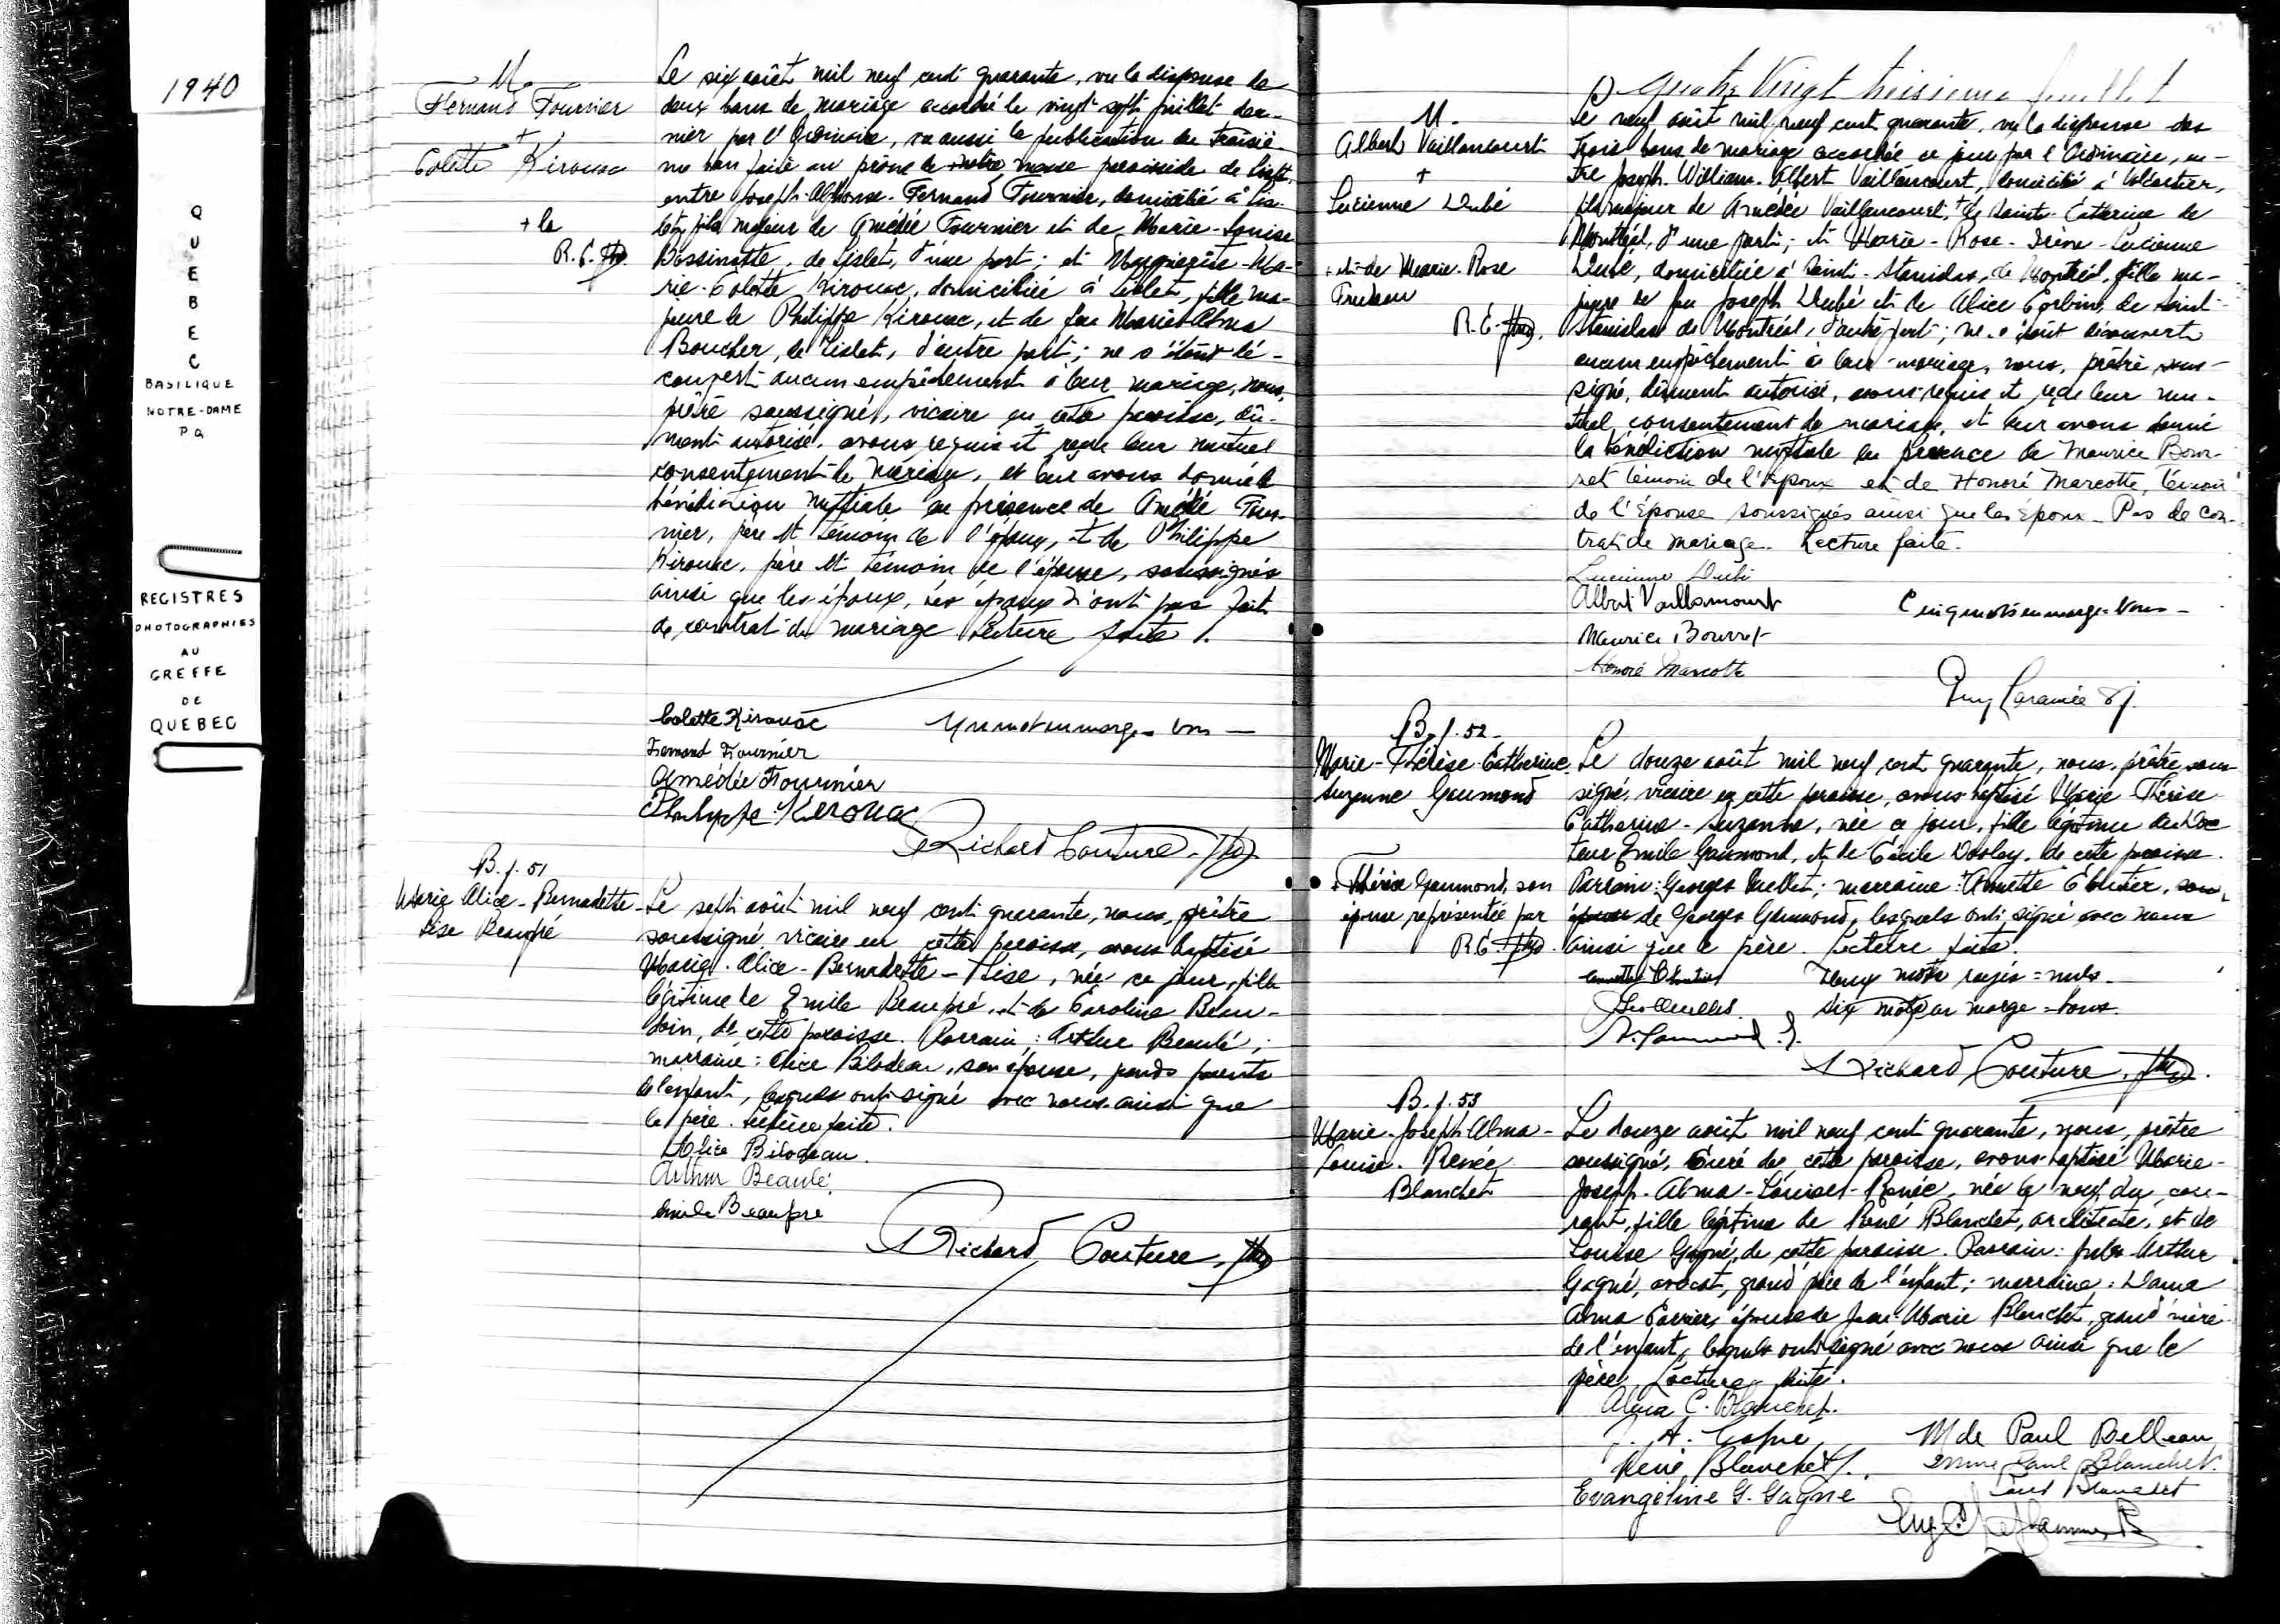 1940
QUEBEC
BASILIQUE
NOTRE-DAME
PQ
REGISTRES
PHOTOGRAPHIES
AU
GREFFE
DE
QUEBEC
M.
Fernand Fournier
+
Colette Kirouac
+ la
R.C. ptre
Le six août mil neuf cent quarante, vu la dispense de
deux bans de mariage accordé le vingt-sept juillet der-
nier par l'Ordinaire, vu aussi la publication du troisiè-
me ban faite au prône de notre messe paroissiale de Lislet,
entre Joseph-Alphonse-Fernand Fournier, domicilié à Lis-
let, fils majeur de Amédée Fournier et de Marie-Louise
de Lislet, d'une part; et Marguerite-Ma-
rie-Colette Kirouac, domiciliée à Lislet, fille ma-
jeure de Philippe Kirouac, et de feu Marie Alma
Boucher, de Lislet, d'autre part; ne s'étant dé-
couvert aucun empêchement à leur mariage, nous,
prêtre soussigné, vicaire en cette paroisse, dû-
ment autorisé, avons requis et reçu leur mutuel
consentement de mariage, et leur avons donné la
bénédiction nuptiale en présence de Amédée Four-
nier, père et témoin de l'époux, et de Philippe
Kirouac, père et témoin de l'épouse, soussignés
ainsi que les époux, les époux n'ont pas fait
de contrat de mariage. Lecture faite.
Colette Kirouac Un mot en marge = bon —
Fernand Fournier
Amédée Fournier
Philippe Kirouac
Richard Couture, ptre
B. f. 51
Marie Alice-Bernadette-
Lise Beaupré
Le sept août mil neuf cent quarante, nous, prêtre
soussigné, vicaire en cette paroisse, avons baptisé
Marie-Alice-Bernadette-Lise, née ce jour, fille
légitime de Emile Beaupré et de Caroline Beau-
doin, de cette paroisse. Parrain: Arthur Beaulé;
marraine: Alice Bilodeau, son épouse, grands parents
de l'enfant, lesquels ont signé avec nous ainsi que
le père. Lecture faite.
Alice Bilodeau.
Arthur Beaulé.
Emile Beaupré
Richard Couture, ptre
Quatre Vingt treisième feuillet
M.
Albert Vaillancourt
+
Lucienne Dubé
+ et de Marie-Rose
Trudeau
R.C. ptre.
Le neuf août mil neuf cent quarante, vu la dispense des
trois bans de mariage accordée ce jour par l'Ordinaire, en-
tre Joseph-William-Albert Vaillancourt, domicilié à Valcartier,
fils majeur de Amédée Vaillancourt, + de Sainte-Catherine de
Montréal, d'une part; et Marie-Rose-Irène-Lucienne
Dubé, domiciliée à Saint-Stanislas, de Montréal, fille ma-
jeure de feu Joseph Dubé et de Alice Corbin, de Saint-
Stanislas de Montréal, d'autre part; ne s'étant découvert
aucun empêchement à leur mariage, nous, prêtre sous-
signé, dûment autorisé, avons requis et reçu leur mu-
tuel consentement de mariage, et leur avons donné
la bénédiction nuptiale en présence de Maurice Bour-
ret témoin de l'époux et de Honoré Marcotte, témoin
de l'épouse soussignés ainsi que les époux. Pas de con-
trat de mariage. Lecture faite.
Lucienne Dubé
Albert Vaillancourt Cinq mots en marge = bons —
Maurice Bourret
Honoré Marcotte
Guy Laramée s.j.
B. f. 52
Marie-Thérèse-Catherine
Suzanne Gaumond
+ Thérèse Gaumond, son
épouse représentée par
R.C. ptre
Le douze août mil neuf cent quarante, nous, prêtre sous-
signé, vicaire en cette paroisse, avons baptisé Marie Thérèse
Catherine-Suzanne, née ce jour, fille légitime du Doc-
teur Emile Gaumond, et de Cécile de cette paroisse.
Parrain: Georges Ouellet; marraine: Annette Cloutier, son
épouse de Georges Gaumond, lesquels ont signé avec nous
ainsi que le père. Lecture faite.
Annette Cloutier Deux mots rayés = nuls.
Six mots en marge = bons.
Richard Couture, ptre.
B. f. 53
Marie-Joseph-Alma-
Louise-Renée
Blanchet
Le douze août mil neuf cent quarante, nous, prêtre
soussigné, curé de cette paroisse, avons baptisé Marie-
Joseph-Alma-Louise-Renée, née le neuf du cou-
rant, fille légitime de René Blanchet, architecte, et de
Louise Gagné, de cette paroisse. Parrain: Jules-Arthur
Gagné, avocat, grand'père de l'enfant; marraine: Dame
Alma épouse de Jean-Marie Blanchet, grand'mère
de l'enfant, lesquels ont signé avec nous ainsi que le
père. Lecture faite.
Alma C. Blanchet.
J. A. Gagné Mde Paul Belleau
René Blanchet. Mme Paul Blanchet.
Evangéline G. Gagné Paul Blanchet